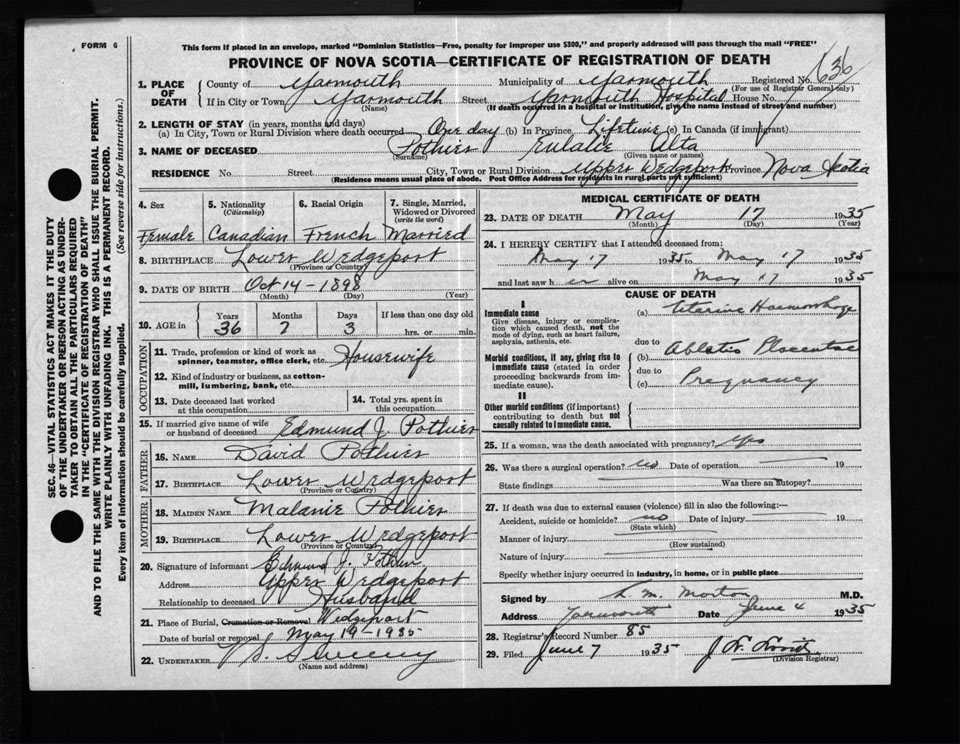 FORM 6
This form if placed in an envelope, marked "Dominion Statistics—Free, penalty for improper use $300," and properly addressed will pass through the mail "FREE"
PROVINCE OF NOVA SCOTIA—CERTIFICATE OF REGISTRATION OF DEATH
1. PLACE OF DEATH
County of Yarmouth Municipality of Yarmouth Registered No. 636
(For use of Registrar General only)
If in City or Town Yarmouth Street Yarmouth Hospital House No.
(Name) (If death occurred in a hospital or institution, give the name instead of street and number)
2. LENGTH OF STAY (in years, months and days)
(a) In City, Town or Rural Division where death occurred One day (b) In Province Lifetime (c) In Canada (if immigrant)
3. NAME OF DECEASED Pothier Eulalie Alta
(Surname) (Given name or names)
RESIDENCE No. Street City, Town or Rural Division Upper Wedgeport Province Nova Scotia
(Residence means usual place of abode. Post Office Address for residents in rural parts not sufficient)
4. Sex
Female
5. Nationality
(Citizenship)
Canadian
6. Racial Origin
French
7. Single, Married, Widowed or Divorced
(write the word)
Married
8. BIRTHPLACE Lower Wedgeport
(Province or Country)
9. DATE OF BIRTH Oct 14 - 1898
(Month) (Day) (Year)
10. AGE in
Years Months Days If less than one day old
36 7 3 hrs. or min.
OCCUPATION
11. Trade, profession or kind of work as spinner, teamster, office clerk, etc. Housewife
12. Kind of industry or business, as cotton-mill, lumbering, bank, etc.
13. Date deceased last worked at this occupation
14. Total yrs. spent in this occupation
15. If married give name of wife or husband of deceased Edmund J. Pothier
FATHER
16. NAME David Pothier
17. BIRTHPLACE Lower Wedgeport
(Province or Country)
MOTHER
18. MAIDEN NAME Malanie Pothier
19. BIRTHPLACE Lower Wedgeport
(Province or Country)
20. Signature of informant Edmund J. Pothier
Address Upper Wedgeport
Relationship to deceased Husband
21. Place of Burial, Cremation or Removal Wedgeport
Date of burial or removal May 19 - 1935
22. UNDERTAKER Sweeny
(Name and address)
MEDICAL CERTIFICATE OF DEATH
23. DATE OF DEATH May 17 1935
(Month) (Day) (Year)
24. I HEREBY CERTIFY that I attended deceased from:
May 17 1935 to May 17 1935
and last saw her alive on May 17 1935
CAUSE OF DEATH
I
Immediate cause
Give disease, injury or complication which caused death, not the mode of dying, such as heart failure, asphyxia, asthenia, etc.
(a) Uterine Haemorrhage
due to
Morbid conditions, if any, giving rise to immediate cause (stated in order proceeding backwards from immediate cause).
(b) Ablatio Placentae
due to
(c) Pregnancy
II
Other morbid conditions (if important) contributing to death but not causally related to immediate cause.
25. If a woman, was the death associated with pregnancy? yes
26. Was there a surgical operation? no Date of operation 19
State findings Was there an autopsy?
27. If death was due to external causes (violence) fill in also the following:—
Accident, suicide or homicide? no Date of injury 19
(State which)
Manner of injury
(How sustained)
Nature of injury
Specify whether injury occurred in industry, in home, or in public place
Signed by L. M. Morton M.D.
Address Yarmouth Date June 4 1935
28. Registrar's Record Number 85
29. Filed June 7 1935
(Division Registrar)
SEC. 46—VITAL STATISTICS ACT MAKES IT THE DUTY
OF THE UNDERTAKER OR PERSON ACTING AS UNDER-
TAKER TO OBTAIN ALL THE PARTICULARS REQUIRED
IN THE "CERTIFICATE OF REGISTRATION OF DEATH"
AND TO FILE THE SAME WITH THE DIVISION REGISTRAR WHO SHALL ISSUE THE BURIAL PERMIT.
WRITE PLAINLY WITH UNFADING INK. THIS IS A PERMANENT RECORD.
Every item of information should be carefully supplied. (See reverse side for instructions.)